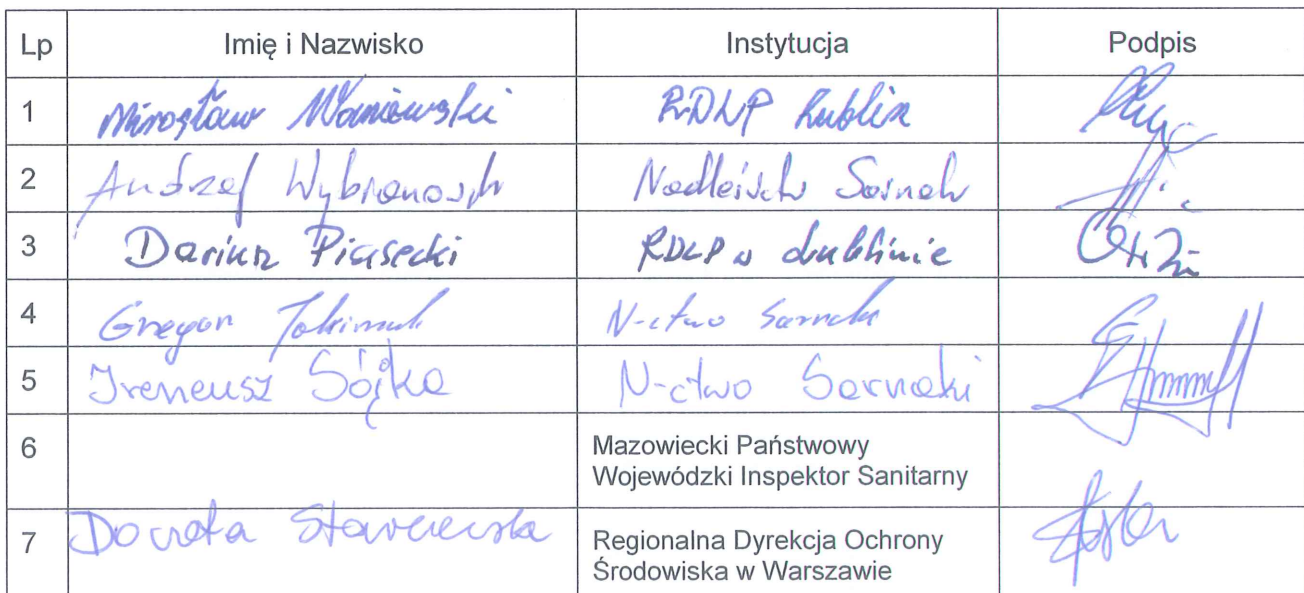 Lp Imię i Nazwisko Instytucja Podpis
1 Mirosław Waniewski RDLP Lublin
2 Andrzej Nadleśnictwo Sarnaki
3 Dariusz Piasecki RDLP w Lublinie
4 Grzegorz N-ctwo Sarnaki
5 Ireneusz Sójka N-ctwo Sarnaki
6 Mazowiecki Państwowy
Wojewódzki Inspektor Sanitarny
7 Dorota Regionalna Dyrekcja Ochrony
Środowiska w Warszawie